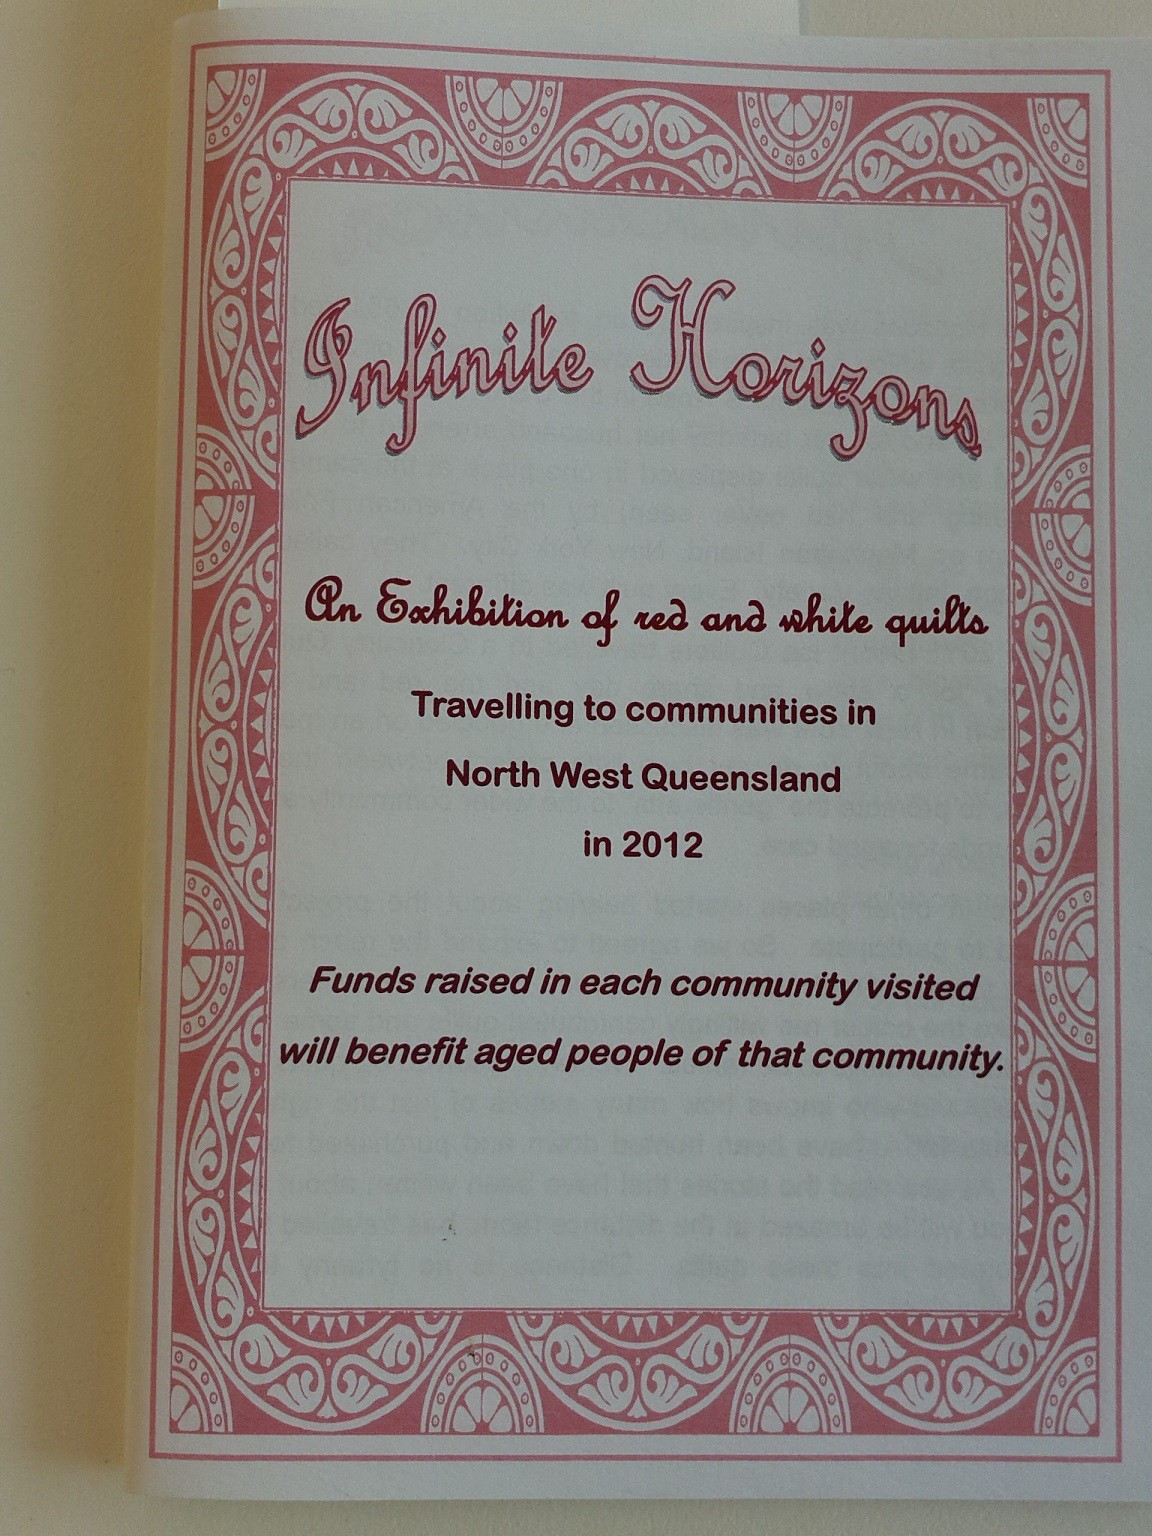 Infinite Horizons
An Exhibition of red and white quilts
Travelling to communities in
North West Queensland
in 2012
Funds raised in each community visited
will benefit aged people of that community.